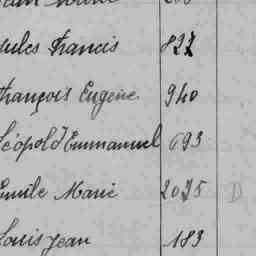 Jules Francis 827
François Eugène 940
Léopold Emmanuel 693
Emile Marie 2025 D
Louis Jean 183